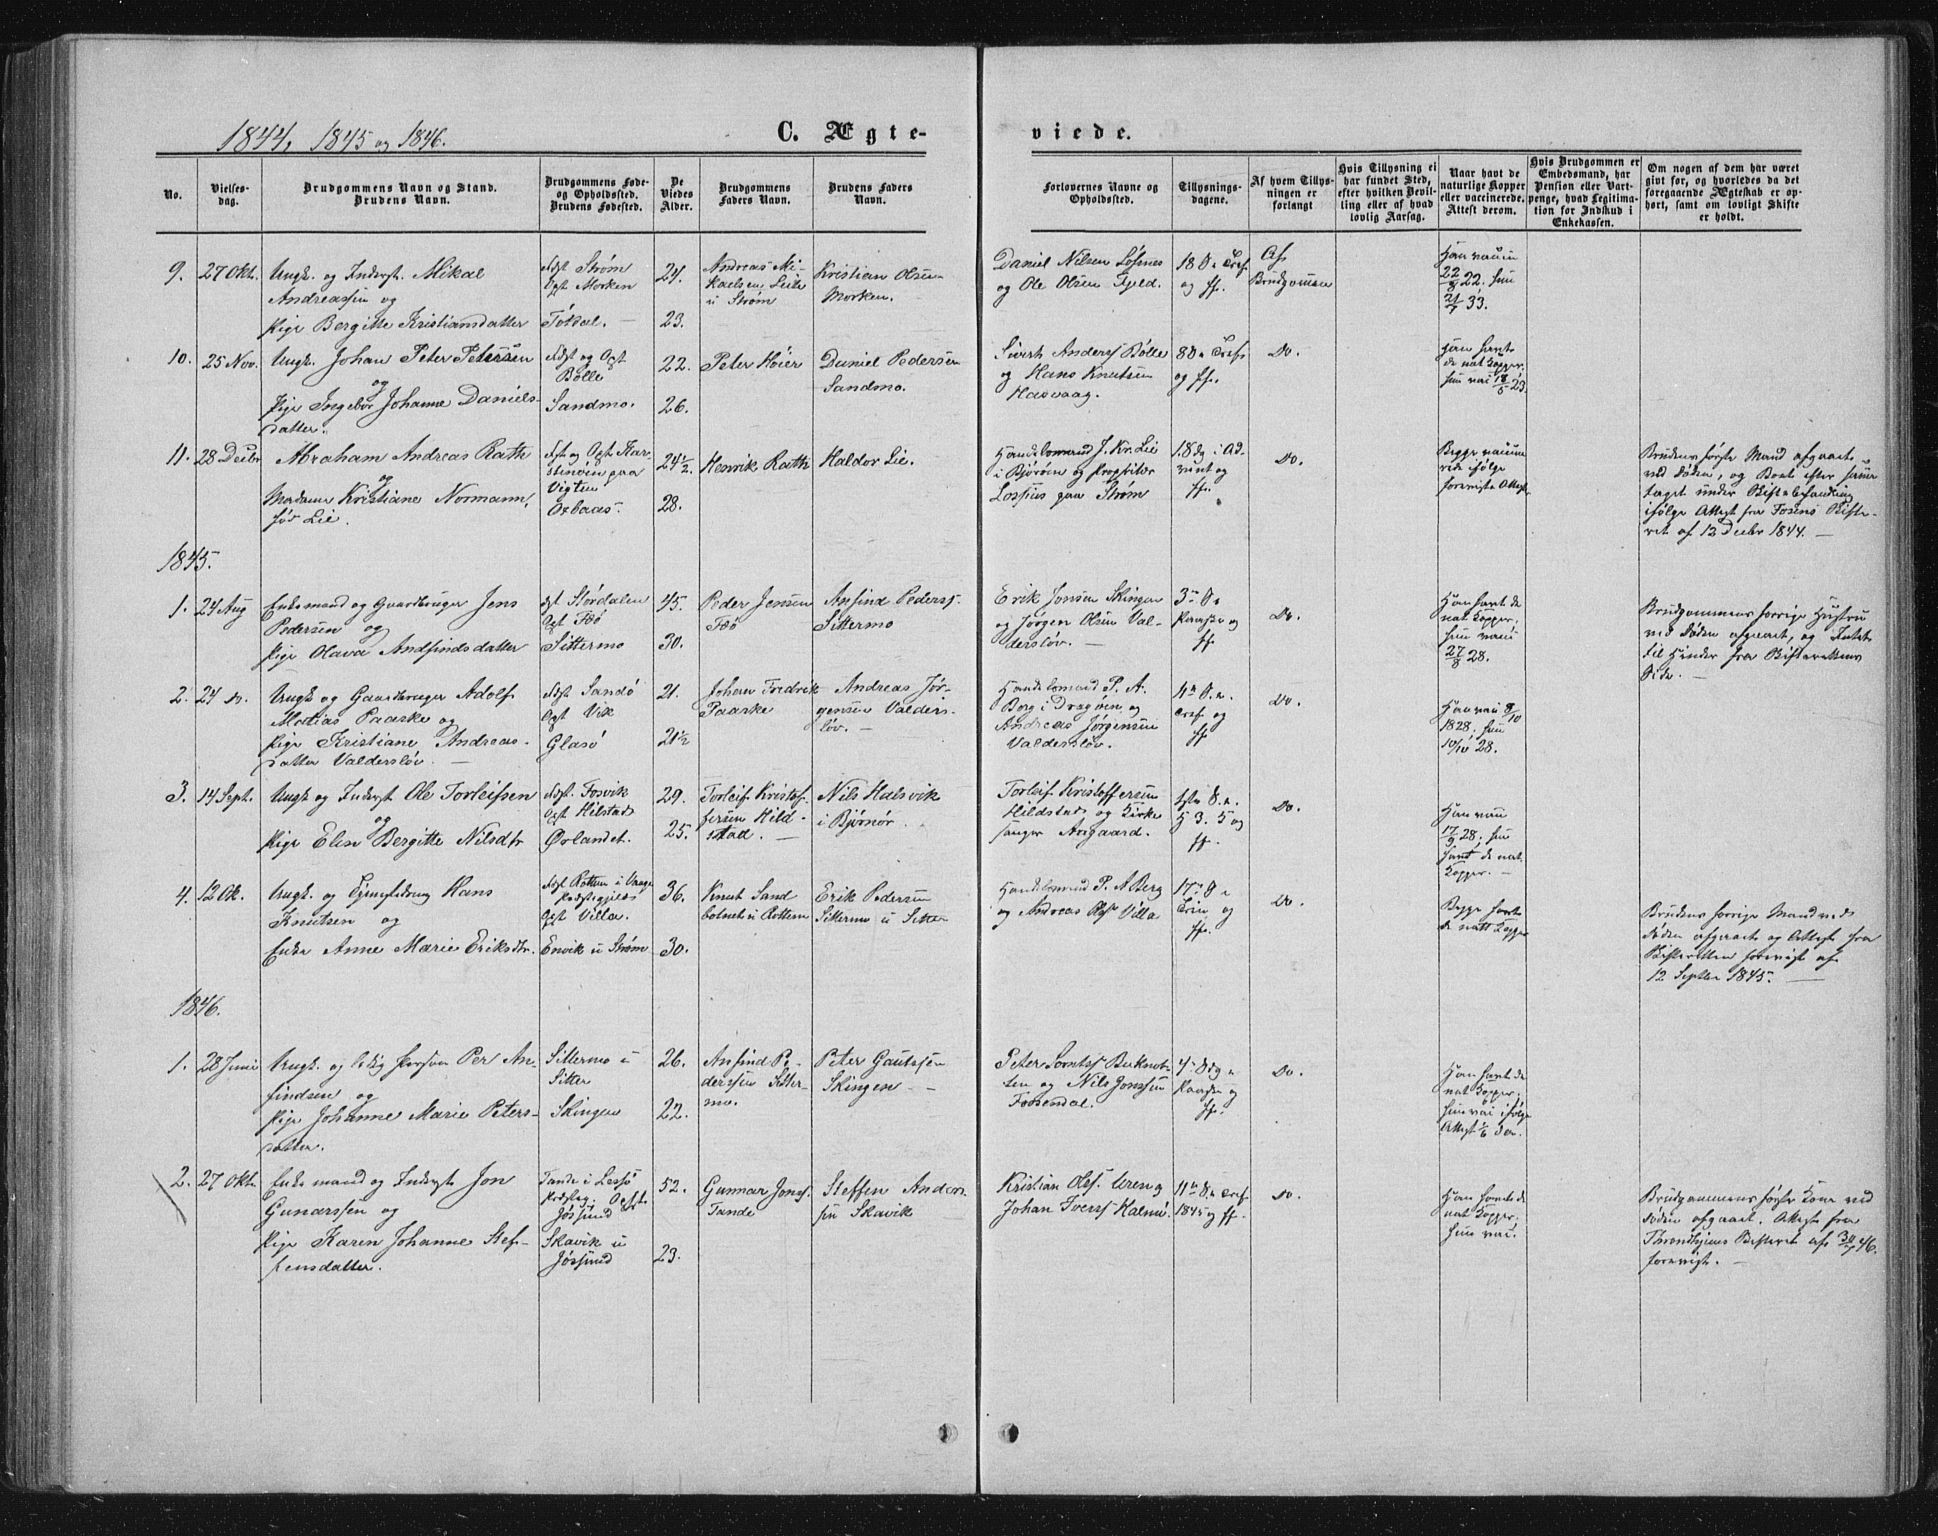 1844, 1845 og 1846.
C. Ægte-
viede.
No.
Vielses-
dag.
Brudgommens Navn og Stand.
Brudens Navn.
Brudgommens Føde-
og Opholdssted.
Brudens Fødested.
De
Viedes
Alder.
Brudgommens
Faders Navn.
Brudens Faders
Navn.
Forlovernes Navne og
Opholdssted.
Tillysnings-
dagene.
Af hvem Tillys-
ningen er
forlangt
Hvis Tillysning ei
har fundet Sted,
efter hvilken Bevil-
ling eller af hvad
lovlig Aarsag.
Naar havt de
naturlige Kopper
eller vaccinerede.
Attest derom.
Hvis Brudgommen er
Embedsmand, har
Pension eller Vart-
penge, hvad Legitima-
tion for Indskud i
Enkekassen.
Om nogen af dem har været
gift før, og hvorledes da det
foregaaende Ægteskab er op-
hørt, samt om lovligt Skifte
er holdt.
9. 27 Okt. Ungk. og Inderst. Mikal
Andreassen og
Pige Bergitte Kristiansdatter
Fdst Strøm
Opst Morken
24.
23.
Andreas Mi-
kaelsen
i Strøm
Kristian Olsen
Morken.
Daniel Nilsen Løfsnes
og Ole Olsen Fjeld.
Brudgommen
22/8 22. hun
21/7 33.
10. 25 Nov. Ungk. Johan Peter Petersen
og
Pige Ingebor Johanne Daniels-
datter.
Fdst og Opst
Bølle
Sandmo.
22.
26.
Peter Höier
Daniel Pedersen
Sandmo.
Sivert Anderss Bölle
og Hans Knutsen
Hasvaag.
Do.
Han havt
de nat Kopper.
hun vac 18/5 23.
11. 28 Decbr Abraham Andreas Rath
og
Madame Kristiane Normann,
før Lie.
Vigten
Oxbaas.
24½
28.
Henrik Rath
Haldor Lie.
Handelsmand J. Kr. Lie
i Bjørøen og Proprietær
Lossius paa Strøm
Do.
Begge vaccine-
rede ifølge
foreviste Attester
Brudens første Mand afgaaet
ved Døden, og Boet efter ham
taget under Skiftebehandling
ifølge Attest fra Fosens Skifte-
ret af 12 Decbr 1844. —
1845.
1. 24 Aug Enkemand og Gaardbruger Jens
Pedersen og
Pige Olava Andfindsdatter
Fdst Størdalen
Opst Fæö
Sittermo
45.
30.
Peder Jensen
Fæö
Anfind Peders.
Sittermo
Erik Jonsen Skingen
og Jørgen Olsen Val-
dersløv. —
Do.
Han havt de
nat Kopper,
hun vacc
27/8 28.
Brudgommens forrige Hustru
ved Døden afgaaet, og Intet
til Hinder fra Skifterettens
Side. —
2. 24 d. Ungk og Gaardbruger Adolf
Matias Paaske og
Pige Kristiane Andreas-
datter Valdersløv. —
Fdst Sandö
Opst Vik
Glasö
21.
21½
Johan Fredrik
Paaske
Andreas Jør-
gensen Valders-
løv. —
Handelsmand P. A.
Borg i Dragøen og
Andreas Jørgensen
Valdersløv.
Do.
Han vac 8/10
1828, hun
10/10 28.
3. 14 Sept. Ungk og Inderst Ole Torleifsen
og
Pige Elen Bergitte Nilsdtr
Fdst. Fosvik
Opst Hilstad
Ørlandet.
29.
25.
Torleif Kristof-
fersen Hild-
stad. —
Nils Halsvik
i Bjørnør.
Torleif Kristoffersen
Hildstad og Kirke
sanger Aargaard.
Do.
Han vacc
17/9 28; hun
havt de nat.
Kopper. —
4. 12 Ok. Ungk. og Hans
Knutsen og
Enke Anne Marie Eriksdtr.
Opst Villa.
Envik i Strøm
36.
30.
Knut Sand
Erik Pedersen
Sittermo i Sitter
Handelsmand P. A Berg
og Andreas Villa
Do.
Begge havt
de natl Kopper
Brudens forrige Mand ved
Døden afgaaet og Attest fra
Skifteretten forevist af
12 Septbr 1845. —
1846.
1. 28 Juni Ungk. og ledig Person Per An-
findsen og
Pige Johanne Marie Peters-
datter.
Sittermo i
Sitter
Skingen
26.
22.
Anfind Pe-
dersen Sitter-
mo.
Peter Gautesen
Skingen —
og Nils Jonssen
Fossendal.
Do.
Han havt de
nat Kopper;
hun vac ifølge
Attest
2. 27 Okt. Enkemand og Inderst Jon
Gunarssen og
Pige Karen Johanne Stef-
fensdatter.
Tande i Lessö
Præstegj. Opst.
Jøssund
Skavik i
Jøssund
52.
23.
Gunnar Jons.
Tande
Steffen Ander-
sen Skavik
Kristian Uren og
Johan Iverss Kalmö.
Do.
Han havt de
nat Kopper,
hun vac.
Brudgommens første Kone ved
Døden afgaaet. Attest fra
Throndhjems Skifteret af 30/7 46.
forevist. —